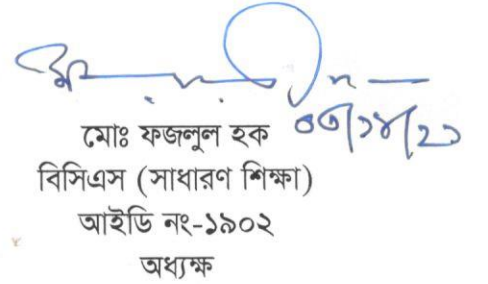 মোঃ ফজলুল হক
বিসিএস (সাধারণ শিক্ষা)
আইডি নং-১৯০২
অধ্যক্ষ